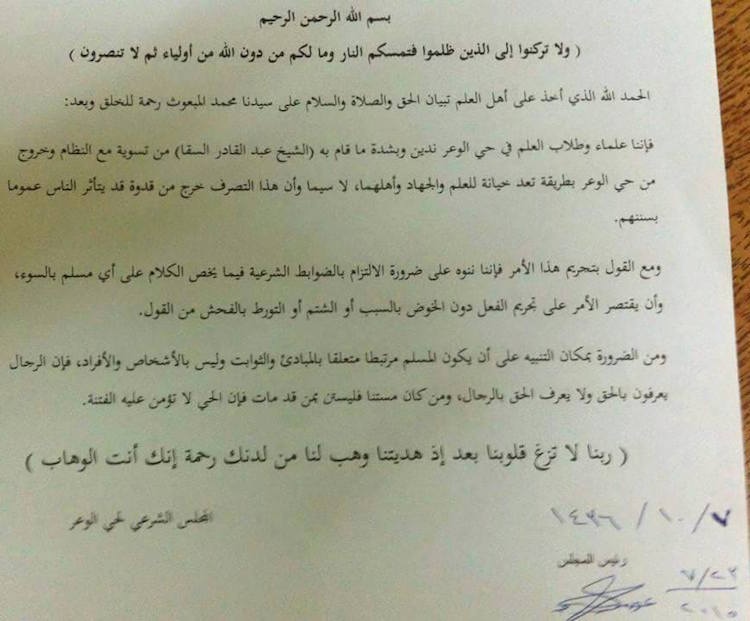 بسم الله الرحمن الرحيم
( ولا تركنوا إلى الذين ظلموا فتمسكم النار وما لكم من دون الله من أولياء ثم لا تنصرون )
الحمد الله الذي أخذ على أهل العلم تبيان الحق والصلاة والسلام على سيدنا محمد المبعوث رحمة للخلق وبعد:
فإننا علماء وطلاب العلم في حي الوعر ندين وبشدة ما قام به (الشيخ عبد القادر السقا) من تسوية مع النظام وخروج
من حي الوعر بطريقة تعد خيانة للعلم والجهاد وأهلهما، لا سيما وأن هذا التصرف خرج من قدوة قد يتأثر الناس عموما
بسننهم.
ومع القول بتحريم هذا الأمر فإننا ننوه على ضرورة الالتزام بالضوابط الشرعية فيما يخص الكلام على أي مسلم بالسوء،
وأن يقتصر الأمر على تحريم الفعل دون الخوض بالسبب أو الشتم أو التورط بالفحش من القول.
ومن الضرورة بمكان التنبيه على أن يكون المسلم مرتبطا متعلقا بالمبادئ والثوابت وليس بالأشخاص والأفراد، فإن الرجال
يعرفون بالحق ولا يعرف الحق بالرجال، ومن كان مستنا فليستن بمن قد مات فإن الحي لا تؤمن عليه الفتنة.
( ربنا لا تزغ قلوبنا بعد إذ هديتنا وهب لنا من لدنك رحمة إنك أنت الوهاب )
٧/١٠/١٤٣٦
المجلس الشرعي لحي الوعر
رئيس المجلس
٧/٢٣
٢٠١٥